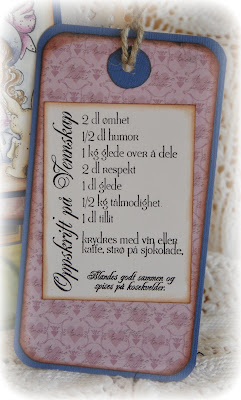 Oppskrift på Vennskap
2 dl ømhet
1/2 dl humor
1 kg glede over å dele
2 dl respekt
1 dl glede
1/2 kg tålmodighet
1 dl tillit
krydres med vin eller
kaffe, strø på sjokolade.
Blandes godt sammen og
spises på kosekvelder.